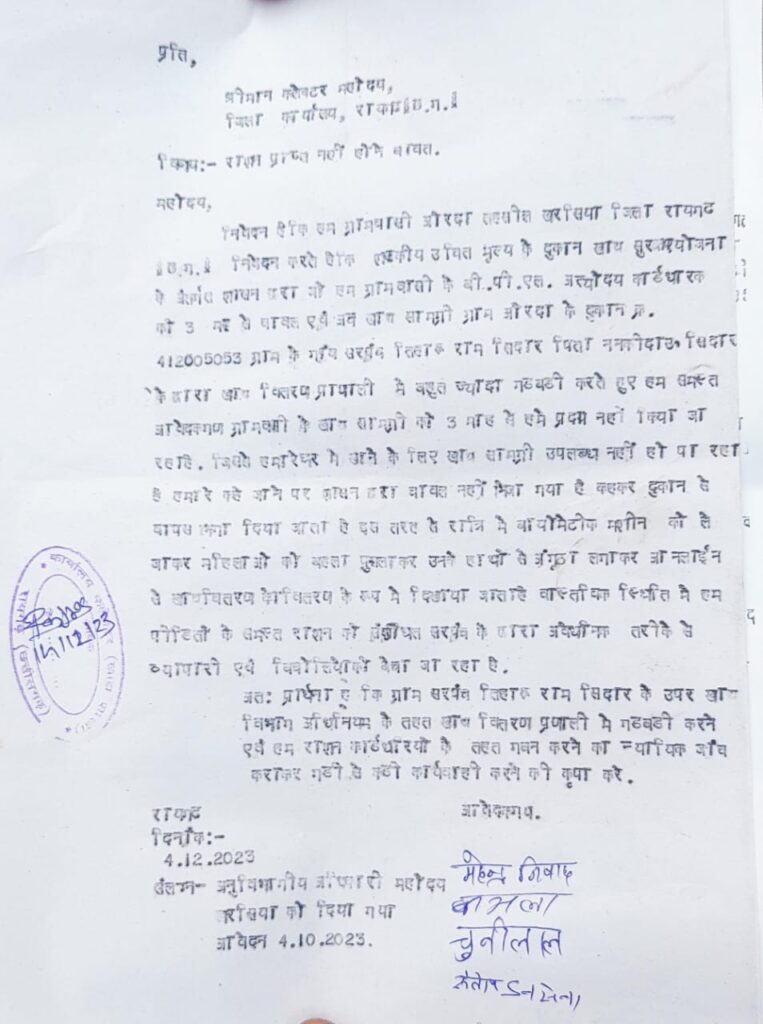 प्रति,
श्रीमान कलेक्टर महोदय,
जिला कार्यालय, रायगढ़ (छ.ग.)
विषय:- राशन प्राप्त नहीं होने बाबत.
महोदय,
निवेदन हैकि हम ग्रामवासी औरदा तहसील खरसिया जिला रायगढ
(छ.ग.) निवेदन करते हैकि शासकीय उचित मुल्य के दुकान खाद्य सुरक्षा योजना
के अंतर्गत शासन द्वारा जो हम ग्रामवासी के बी.पी.एल. अन्त्योदय कार्डधारक
को 3 माह से चावल एवं अन्य खाद्य सामग्री ग्राम औरदा के दुकान क्र.
412005053 ग्राम के सरपंच राम सिदार पिता सिदार
के द्वारा खाद्य वितरण प्रणाली मे बहुत ज्यादा गडबडी करते हुए हम समस्त
आवेदकगण ग्रामवासी के खाद्य सामग्री को 3 माह से हमे प्रदाय नहीं किया जा
रहाहै. जिससे हमारेघर मे खाने के लिए खाद्य सामग्री उपलब्ध नहीं हो पा रहा
है हमारे कहे जाने पर शासन द्वारा चावल नहीं भेजा गया है कहकर दुकान से
वापस भगा दिया जाता है इस तरह से रात्रि मे बायोमेटीक मशीन को ले
जाकर महिलाओ को बहला फुसलाकर उनके हाथो से अंगुठा लगाकर आनलाईन
से खाद्यवितरण केवितरण के रूप मे दिखाया जाताहै वास्तविक स्थिति मे हम
पीडितो के समस्त राशन को संबंधित सरपंच के द्वारा अवैधानिक तरीके से
व्यापारी एवं बिचोलियोको बेचा जा रहा है.
अत: प्रार्थना है कि ग्राम सरपंच राम सिदार के उपर खाद्य
विभाग अधिनियम के तहत खाद्य वितरण प्रणाली मे गडबडी करने
एवं हम राशन कार्डधारियो के तहत गबन करने का न्यायिक जांच
कराकर कडी से कडी कार्यवाही करने की कृपा करे.
रायगढ
आवेदकगण.
दिनांक:-
4.12.2023
संलग्न- अनुविभागीय अधिकारी महोदय
खरसिया को दिया गया
आवेदन 4.10.2023.
महेन्द्र निषाद
कमला
चुनीलाल
कार्यालय कलेक्टर (खाद्य शाखा)
रायगढ़ (छत्तीसगढ़)
14/12/23